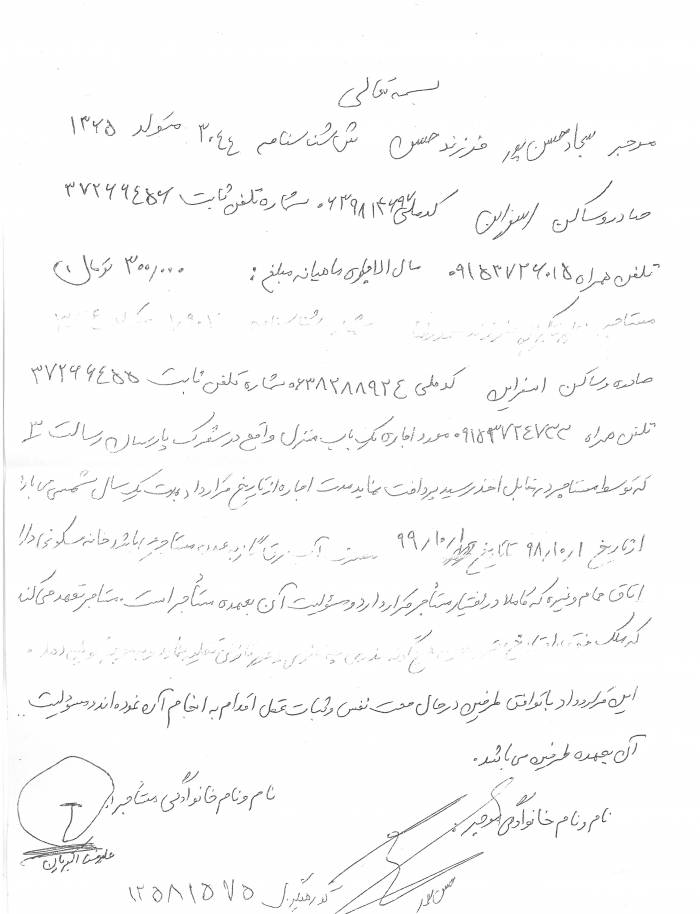 بسمه تعالی
موجر سجاد حسن پور فرزند حسن ش شناسنامه ۳۰۴۴ متولد ۱۳۶۵
صادره و ساکن اسفراین کدملی شماره تلفن ثابت ۳۷۲۶۶۴۵۶
تلفن همراه ۰۹۱۵۳۷۲۶۰۱۵ مال الاجاره ماهیانه مبلغ : ۳۰۰,۰۰۰ تومان
مستاجر فرزند
صادره و ساکن اسفراین کدملی ۰۶۳۸۲۸۸۹۲۴ شماره تلفن ثابت ۳۷۲۶۶۴۵۵
تلفن همراه ۰۹۱۵۳۷۲۴۷۳۳ مورد اجاره یک باب منزل واقع در شهرک پارسیان رسالت ۳
که توسط مستاجر در مقابل اخذ رسید پرداخت نماید مدت اجاره از تاریخ قرارداد بمدت یک سال شمسی می باشد
از تاریخ ۹۸/۱۰/۱ تا تاریخ ۹۹/۱۰/۱ مصرف آب برق گاز بعهده مستاجر می باشد خانه مسکونی دارای
اتاق حمام و غیره که کاملا در اختیار مستأجر قرار دارد و مسئولیت آن بعهده مستأجر است . مستاجر تعهد می کند
که ملک
این قرارداد با توافق طرفین در حال صحت نفس و ثبات عقل اقدام به انجام آن نموده اند و مسئولیت
آن بعهده طرفین می باشد .
نام و نام خانوادگی مستأجر :
نام و نام خانوادگی موجر :
علیرضا اکبریان
حسن پور
کد رهگیری ۱۲۵۸۱۵۷۵